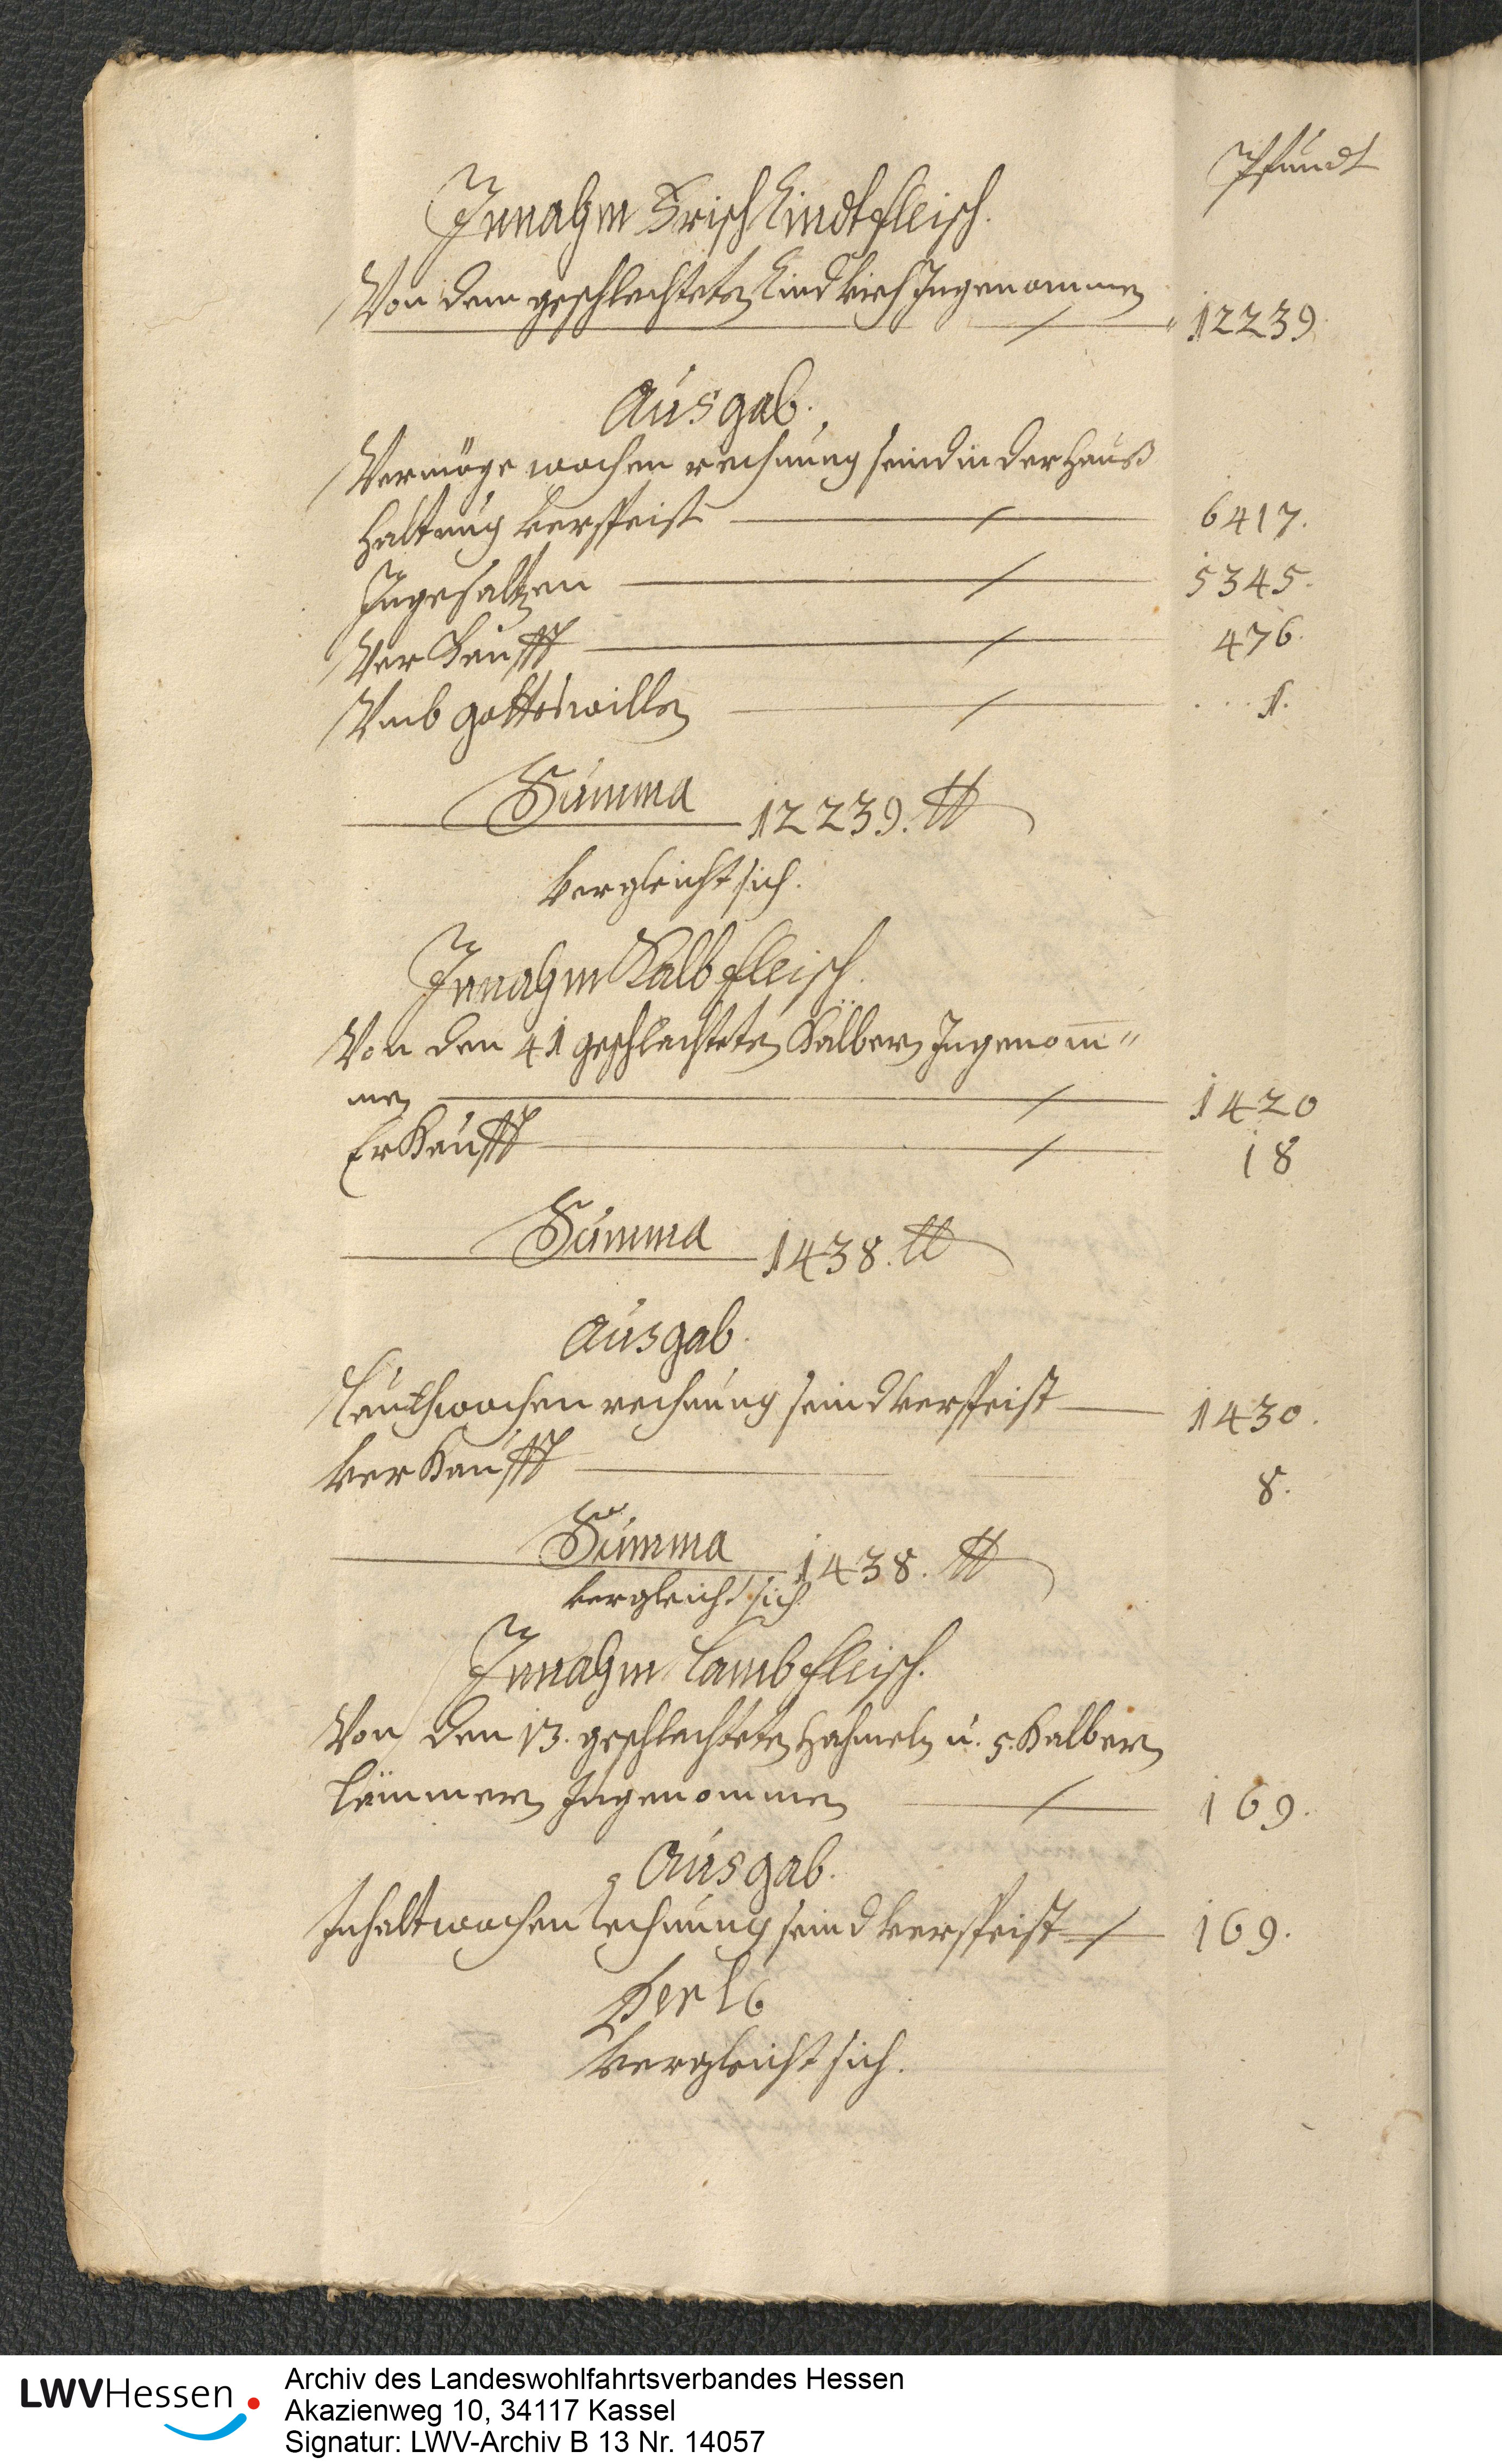 Pfundt
Innahm Frisch Rindtfleisch.
Von dem geschlachteten Rindtvieh Ingenommen
12239
Ausgab.
Vermöge wochen rechnung seind in der Hauß
haltung verspeist 6417.
Ingesaltzen 5345.
Verkaufft 476.
Umb gotteswillen 1.
Summa 12239. ℔
vergleicht sich.
Innahm Kalbfleisch.
Von den 41 geschlachteten Kälbern Ingenom̅"
men 1420
Erkaufft 18
Summa 1438. ℔
Ausgab.
Lauth wochen rechnung seind verspeist 1430.
verkaufft 8.
Summa 1438. ℔
vergleicht sich
Innahm Lambfleisch.
Von den 13. geschlachteten Hahmeln u. 5. Kalber
Lämmern Ingenommen 169.
Ausgab.
Inhalt wochen Rechnung seind verspeist 169.
vergleicht sich.
LWVHessen
Archiv des Landeswohlfahrtsverbandes Hessen
Akazienweg 10, 34117 Kassel
Signatur: LWV-Archiv B 13 Nr. 14057